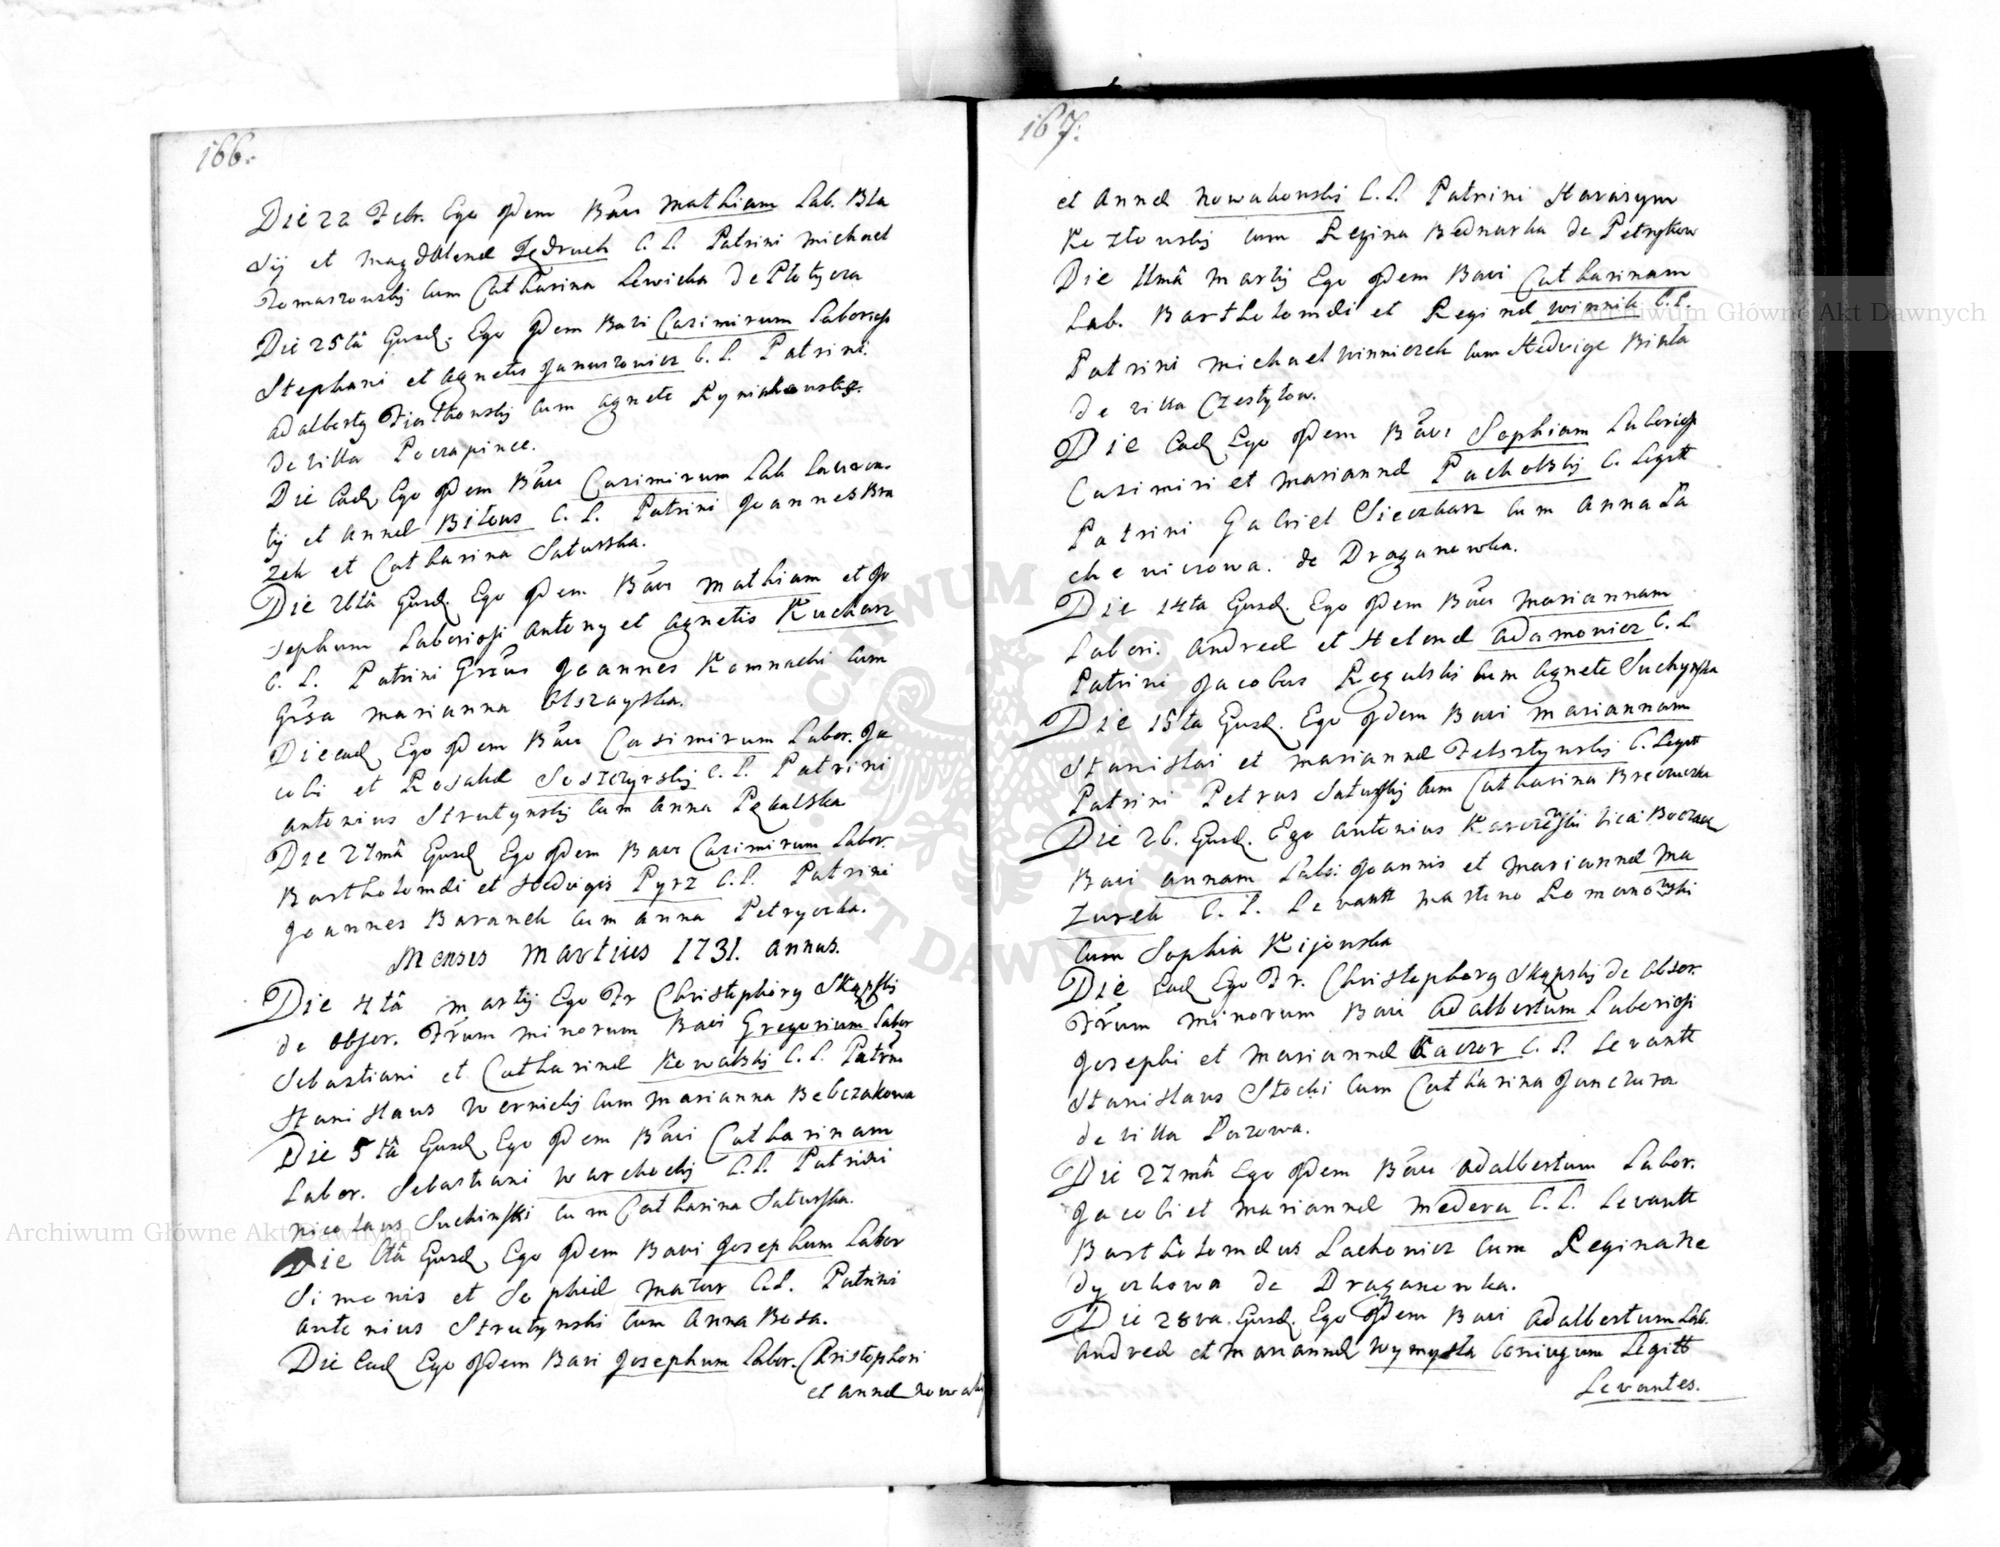 166.
Die 22 Febr. Ego qdem Bavi Mathiam Lab. Bla
sij et Magdalenæ Jędruch C. L. Patrini Michael
Tomaszowskij cum Catharina Lewicka de Płotycza
Die 25tâ Eiusd. Ego qdem Bavi Casimirum Laboriosi
Stephani et Agnetis Januszowicz C. L. Patrini
Adalbertg Fiałkowskij cum Agnete
de villa Poczapince.
Die Ead Ego qdem Bavi Casimirum Lab Lauren
tij et Annæ Bilous C. L. Patrini Joannes Bra
zek et Catharina Saturska.
Die 26tâ Eiusd. Ego qdem Bavi Mathiam et Jo
sephum Laboriosi Antony et Agnetis Kucharz
C. L. Patrini Grsus Joannes Komnacki cum
Grsa Marianna Olszayska.
Die ead Ego qdem Bavi Casimirum Labor. Ja
cobi et Rosaliæ Soszczyrskij C. L. Patrini
Antonius Strutynskij cum Anna Pękalska
Die 27mâ Eiusd Ego qdem Bavi Casimirum Labor.
Bartholomæi et Hedvigis Pyrz C. L. Patrini
Joannes Baranek cum Anna Petryczka.
Mensis Martius 1731. Annus.
Die 4tâ Martij Ego Fr Christophorg Skąpskij
de Obser. Frum Minorum Bavi Gregorium Labor
Sebastiani et Catharinæ Kowalskij C. L. Patrini
Stanislaus Wernickij cum Marianna Bebczakowa
Die 5tâ Eiusd Ego qdem Bavi Catharinam
Labor. Sebastiani Warchockij C. L. Patrini
Nicolaus Suchinski cum Catharina Saturska.
Die 6tâ Eiusd Ego qdem Bavi Josephum Labor
Simonis et Sophiæ Mazur C. L. Patrini
Antonius Strutynski cum Anna Bosa.
Die Ead Ego qdem Bavi Josephum Labor. Christophori
et Annæ Nowak
167.
et Annæ Nowakowskij C. L. Patrini Harasym
Kozłowskij cum Regina Bednarka de Petrykow
Die 11mâ Martij Ego qdem Bavi Catharinam
Lab. Bartholomæi et Reginæ Winnik C. L.
Patrini Michael Winniczek cum Hedvige Biała
de villa Czestyłow.
Die Ead Ego qdem Bavi Sophiam Laboriosi
Casimiri et Mariannæ Pacholskij C. Legitt
Patrini Gabriel Sieczkarz cum Anna Ła
chewiczowa. de Draganowka.
Die 14ta Eiusd. Ego qdem Bavi Mariannam
Labori. Andreæ et Helenæ Adamowicz C. L
Patrini Jacobus Rogulski cum Agnete Suchynska
Die 15ta Eiusd. Ego qdem Bavi Mariannam
Stanislai et Mariannæ Felsztynskij C. Legitt
Patrini Petrus Saturskij cum Catharina
Die 26. Eiusd. Ego Antonius
Bavi Annam Labi Joannis et Mariannæ Ma
zurek C. L. Levantt Martino Romanowski
cum Sophia Kijowska
Die Ead Ego Fr. Christophorg Skąpskij de Obser.
Frum Minorum Bavi Adalbertum Laboriosi
Josephi et Mariannæ Kaczor C. L. Levantt
Stanislaus Stocki cum Catharina Janczura
de villa Łozowa.
Die 27mâ Ego qdem Bavi Adalbertum Labor.
Jacobi et Mariannæ Medera C. L. Levantt
Bartholomæus Lachowicz cum Regina Ne
dyczkowa de Draganowka.
Die 28va. Eiusd. Ego qdem Bavi Adalbertum Lab.
Andreæ et Mariannæ Wymysła Coniugum Legitt
Levantes.
Archiwum Główne Akt Dawnych
Archiwum Główne Akt Dawnych